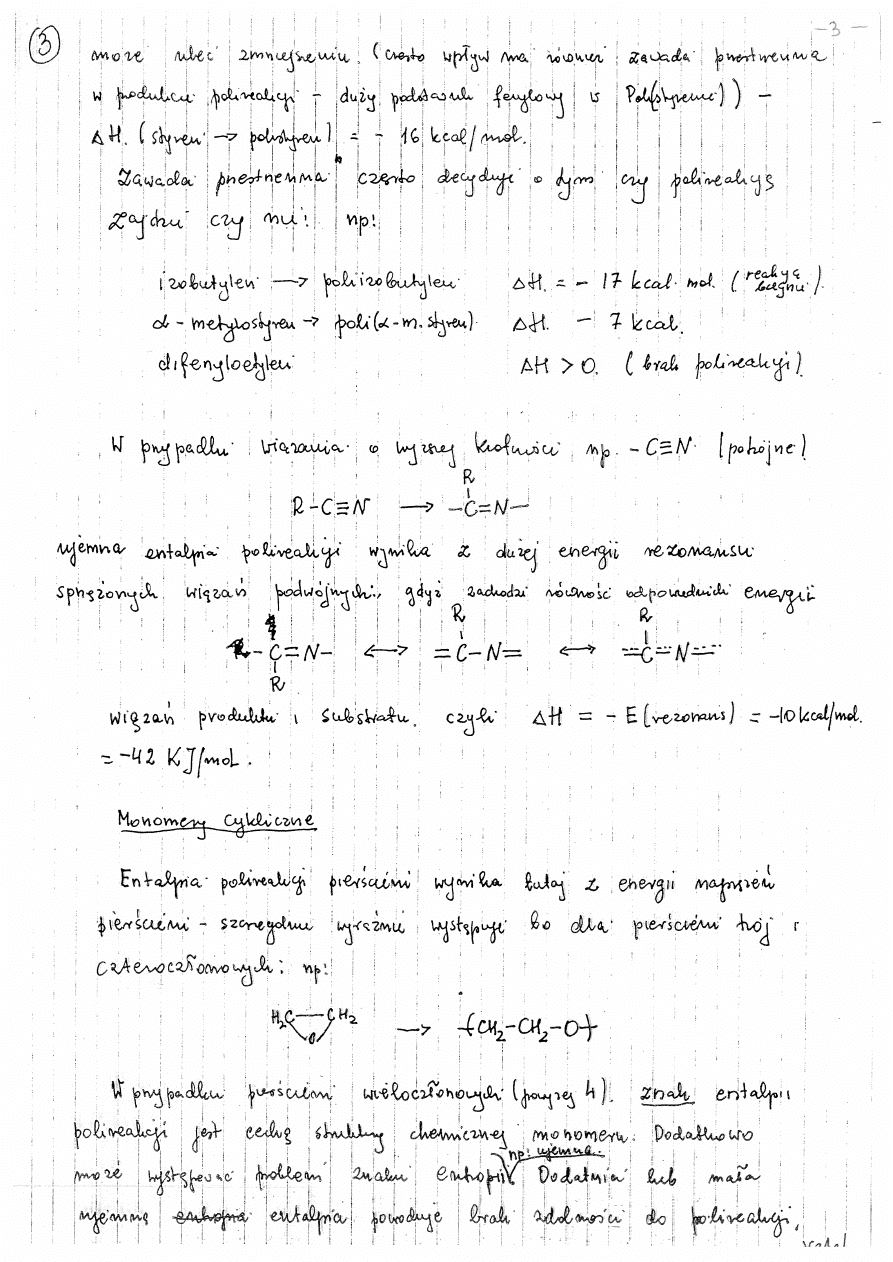 ③
- 3 -
może ulec zmniejszeniu. (często wpływ ma również zawada przestrzenna
w produkcie polireakcji - duży podstawnik fenylowy w Poli(styrenie)) -
ΔH. (styren → polistyren) = - 16 kcal/mol.
Zawada przestrzenna często decyduje o tym czy polireakcja
zajdzie czy nie! np:
izobutylen → poliizobutylen ΔH. = - 17 kcal. mol. (reakcja biegnie).
α - metylostyren → poli(α-m. styren). ΔH. - 7 kcal.
difenyloetylen ΔH > 0. (brak polireakcji).
W przypadku wiązania o wyższej krotności np. - C≡N. (potrójne)
R
R-C≡N → -C=N-
ujemna entalpia polireakcji wynika z dużej energii rezonansu
sprzężonych wiązań podwójnych, gdyż zachodzi równość odpowiednich energii
R R
- C=N- ↔ =C-N= ↔ =C=N=
R
wiązań produktu i substratu. czyli ΔH = - E(rezonans) = -10 kcal/mol.
= -42 KJ/mol.
Monomery cykliczne
Entalpia polireakcji pierścieni wynika tutaj z energii naprężeń
pierścieni - szczególnie wyraźnie występuje to dla pierścieni trój i
czteroczłonowych: np:
H₂C—CH₂ → -(CH₂-CH₂-O)-
O
W przypadku pierścieni wieloczłonowych (powyżej 4). znak entalpii
polireakcji jest cechą struktury chemicznej monomeru. Dodatkowo
np: ujemna..
może występować problem znaku entropii. Dodatnia lub mała
ujemna entropia entalpia powoduje brak zdolności do polireakcji,